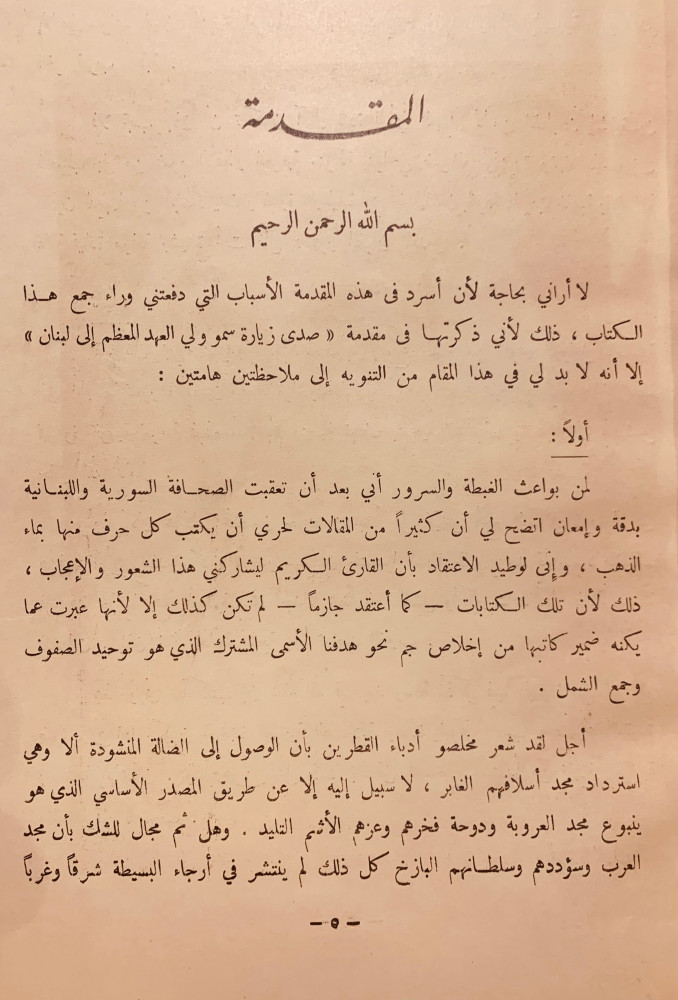 المقدمة
بسم الله الرحمن الرحيم
لا أراني بحاجة لأن أسرد فى هذه المقدمة الأسباب التي دفعتني وراء جمع هذا
الكتاب ، ذلك لأني ذكرتها فى مقدمة « صدى زيارة سمو ولي العهد المعظم إلى لبنان »
إلا أنه لا بد لي في هذا المقام من التنويه إلى ملاحظتين هامتين :
أولاً :
لمن بواعث الغبطة والسرور أني بعد أن تعقبت الصحافة السورية واللبنانية
بدقة وإمعان اتضح لي أن كثيراً من المقالات لحري أن يكتب كل حرف منها بماء
الذهب ، وإنى لوطيد الاعتقاد بأن القارئ الكريم ليشاركني هذا الشعور والإعجاب ،
ذلك لأن تلك الكتابات — كما أعتقد جازماً — لم تكن كذلك إلا لأنها عبرت عما
يكنه ضمير كاتبها من إخلاص جم نحو هدفنا الأسمى المشترك الذي هو توحيد الصفوف
وجمع الشمل .
أجل لقد شعر مخلصو أدباء القطرين بأن الوصول إلى الضالة المنشودة ألا وهي
استرداد مجد أسلافهم الغابر ، لا سبيل إليه إلا عن طريق المصدر الأساسي الذي هو
ينبوع مجد العروبة ودوحة فخرهم وعزهم الأشم التليد . وهل ثم مجال للشك بأن مجد
العرب وسؤددهم وسلطانهم البازخ كل ذلك لم ينتشر في أرجاء البسيطة شرقاً وغرباً
— ٥ —